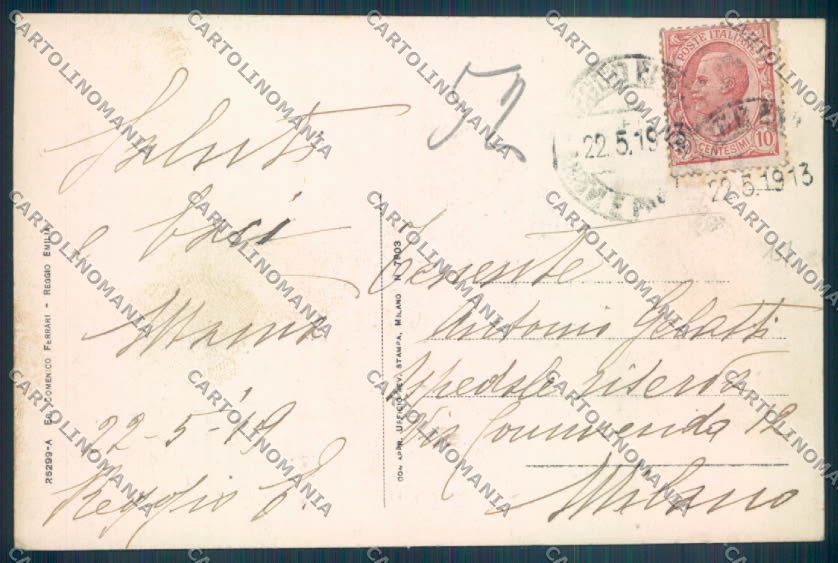 52
POSTE ITALIANE
CENTESIMI 10
22.5.1913
22.5.1913
Saluti
e baci
Mamma
22-5-19
Reggio E.
Tenente
Antonio
Ospedale riserva
Via Commenda 12
Milano
R6299-A Ed. Domenico Ferrari - Reggio Emilia
CON APPR. UFFICIO REV. STAMPA, MILANO N 7903
CARTOLINOMANIA